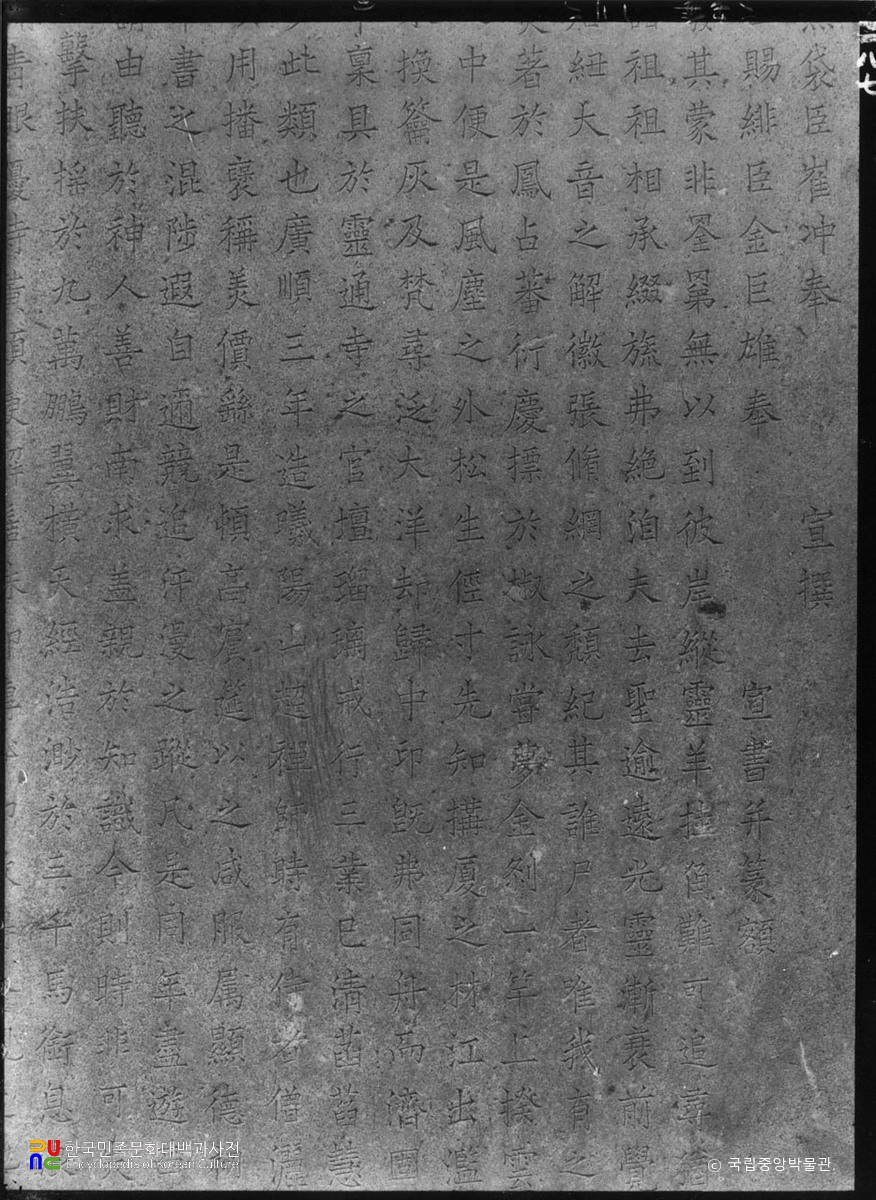 袋臣崔冲奉 宣撰
賜緋臣金巨雄奉 宣書并篆額
其蒙非筌罤無以到彼岸縱靈羊挂角難可追尋
祖祖相承綴旒弗絶洎夫去聖逾遠光靈漸衰前覺
紐大音之解徽張脩綱之頹紀其誰尸者唯我有之
著於鳳占蕃衍慶摽於椒詠嘗夢金刹一竿上揆雲
中便是風塵之外松生徑寸先知搆厦之材江出濫
換籥灰及梵尋泛大洋却歸中印旣弗同舟而濟固
稟具於靈通寺之官壇瑠璃戒行三業已淸菡萏慧
此類也廣順三年造曦陽山超禪師時有侍者僧
用播裹稱美價繇是頓高窟筵以之咸服属顯德
書之混陟遐自邇競追汗漫之蹤凡是同年盡遊
由聽於神人善財南求盖親於知識今則時非可
擊扶揺於九萬鵬翼横天經浩渺於三千馬銜息
한국민족문화대백과사전
Encyclopedia of Korean Culture
© 국립중앙박물관
八七